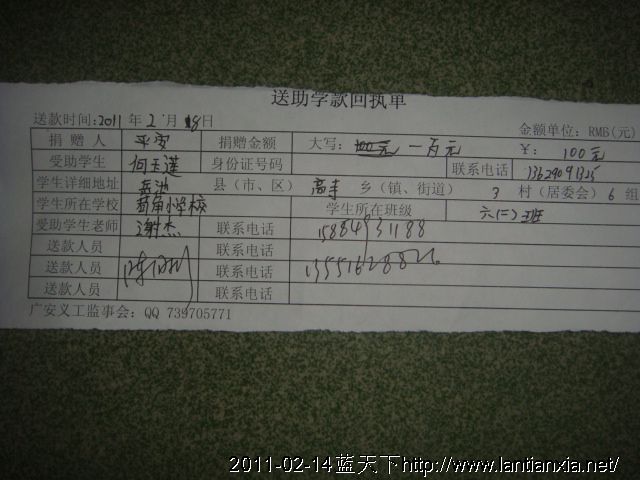 送助学款回执单
送款时间:2011 年 2 月 18日 金额单位: RMB(元)
捐赠人 平安 捐赠金额 大写: 一百元 ¥: 100元
受助学生 何玉莲 身份证号码 联系电话
学生详细地址 岳池 县(市、区) 高丰 乡(镇、街道) 3 村(居委会) 6 组
学生所在学校 小学校 学生所在班级 六(二)班
受助学生老师 谢杰 联系电话 15884931188
送款人员 联系电话
送款人员 联系电话
送款人员 联系电话
广安义工监事会: QQ 739705771
2011-02-14蓝天下http://www.lantianxia.net/